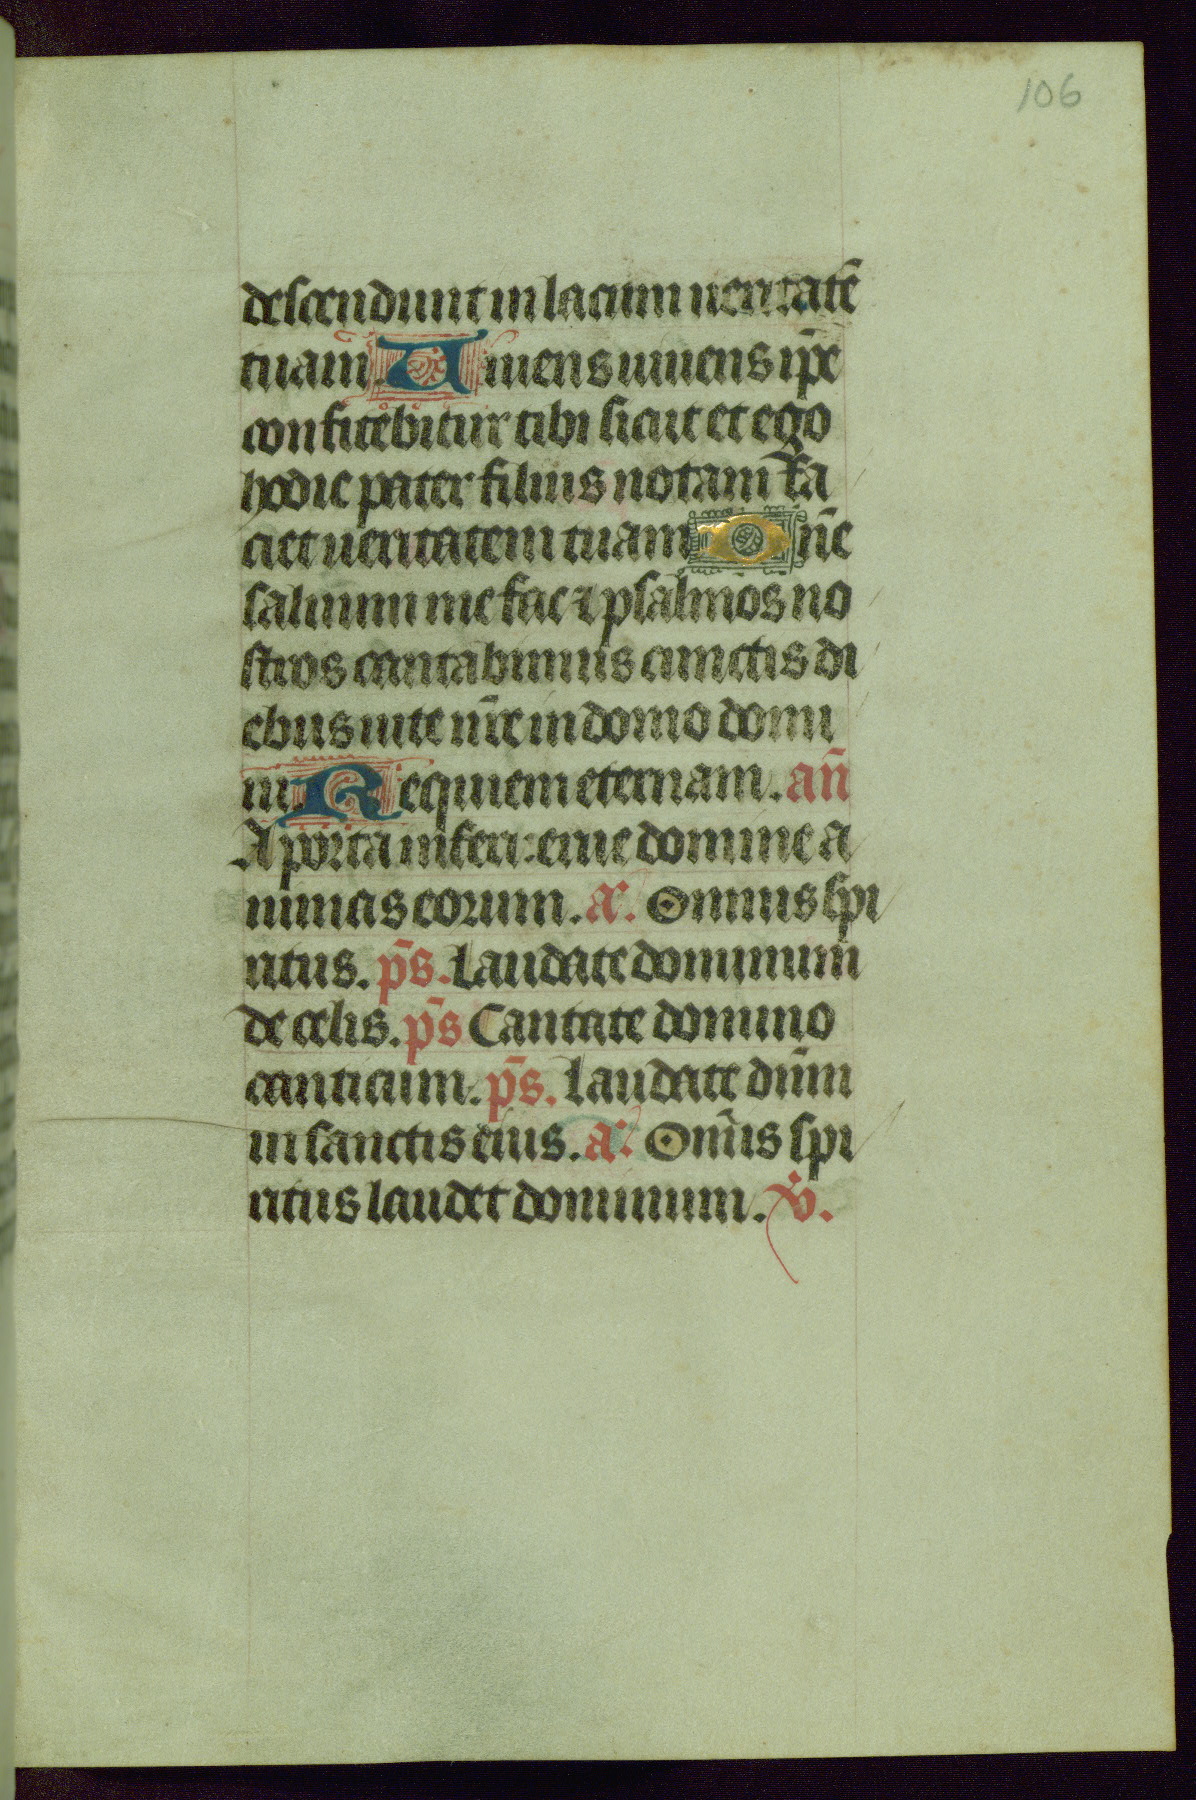 106
descendunt in lacum ueritatē
tuam. Uiuens uiuens ip̄e
confitebitur tibi sicut et ego
hodie pater filiis notam fa
ciet ueritatem tuam Dn̄e
saluum me fac ⁊ psalmos no
stros cantabimus cunctis di
ebus uite nr̄e in domo domi
ni. Requiem eternam. an̄
A porta inferi: erue domine a
nimas eorum. a͛. Omnis spi
ritus. ps̄. Laudate dominum
de celis. ps̄ Cantate domino
canticum. ps̄. Laudate dn̄m
in sanctis eius. a͛. Om̄is spi
ritus laudet dominum. v̇.